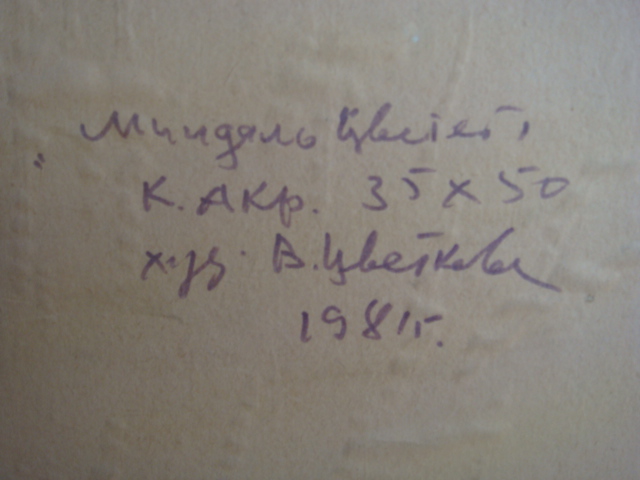 Миндаль Цветет,
К. Акр. 35 х 50
худ. В. Цветкова
1981г.